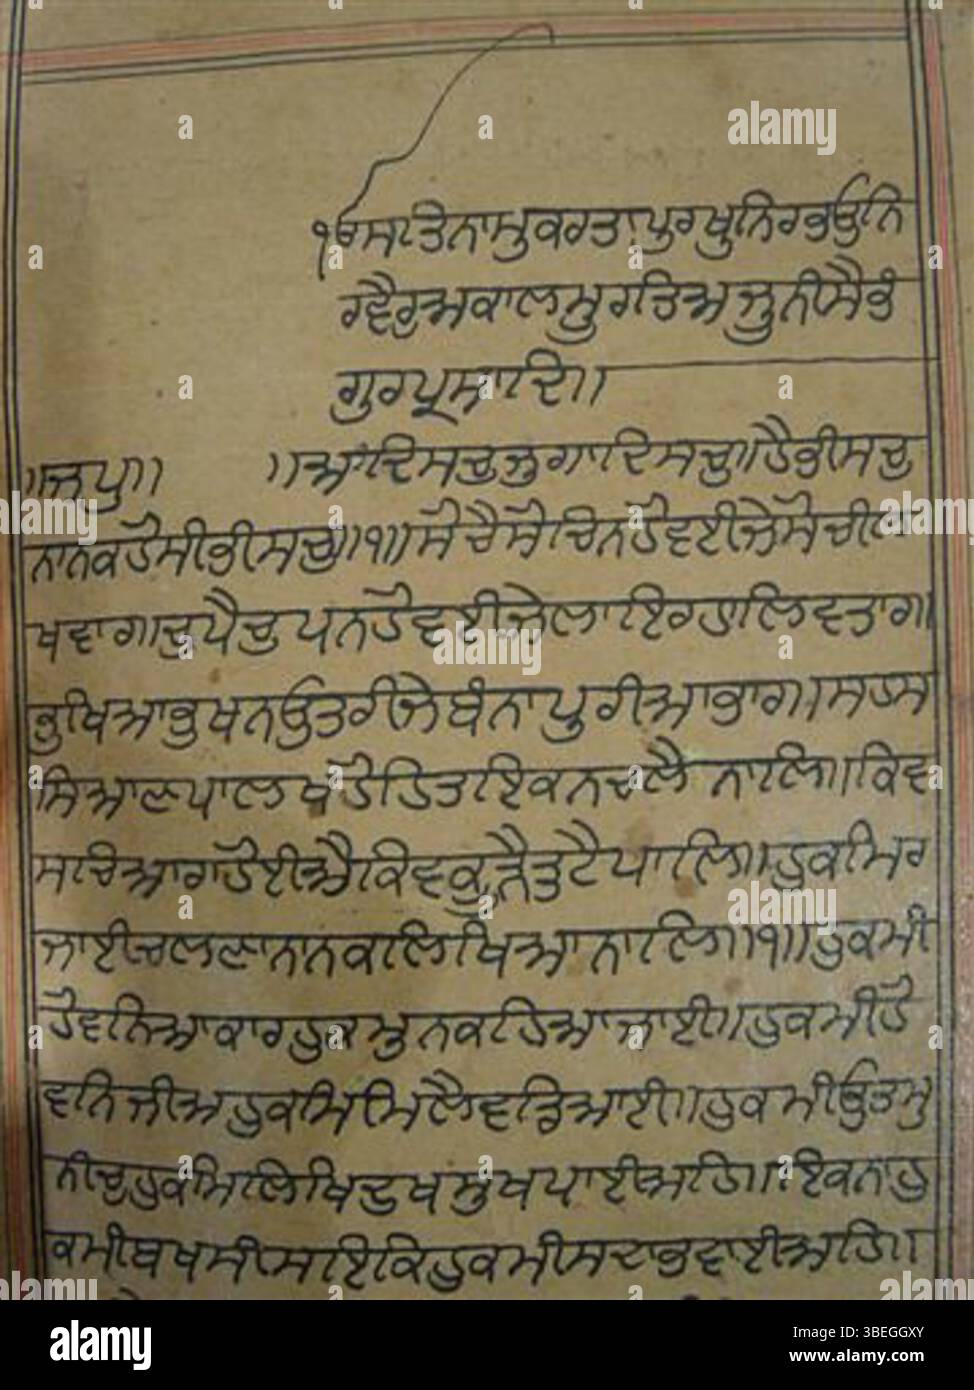 ੴਸਤਿਨਾਮੁਕਰਤਾਪੁਰਖੁਨਿਰਭਉਨਿ
ਰਵੈਰੁਅਕਾਲਮੂਰਤਿਅਜੂਨੀਸੈਭੰ
ਗੁਰਪ੍ਰਸਾਦਿ॥
॥ਜਪੁ॥ ॥ਆਦਿਸਚੁਜੁਗਾਦਿਸਚੁ॥ਹੈਭੀਸਚੁ
ਨਾਨਕਹੋਸੀਭੀਸਚੁ॥੧॥ਸੋਚੈਸੋਚਿਨਹੋਵਈਜੇਸੋਚੀਲ
ਖਵਾਰ॥ਚੁਪੈਚੁਪਨਹੋਵਈਜੇਲਾਇਰਹਾਲਿਵਤਾਰ॥
ਭੁਖਿਆਭੁਖਨਉਤਰੀਜੇਬੰਨਾਪੁਰੀਆਭਾਰ॥ਸਹਸ
ਸਿਆਣਪਾਲਖਹੋਹਿਤਇਕਨਚਲੈ ਨਾਲਿ॥ਕਿਵ
ਸਚਿਆਰਾਹੋਈਐਕਿਵਕੂੜੈਤੁਟੈਪਾਲਿ॥ਹੁਕਮਿਰ
ਜਾਈਚਲਣਾਨਾਨਕਲਿਖਿਆਨਾਲਿ॥੧॥ਹੁਕਮੀ
ਹੋਵਨਿਆਕਾਰਹੁਕਮੁਨਕਹਿਆਜਾਈ॥ਹੁਕਮੀਹੋ
ਵਨਿਜੀਅਹੁਕਮਿਮਿਲੈਵਡਿਆਈ॥ਹੁਕਮੀਉਤਮੁ
ਨੀਚੁਹੁਕਮਿਲਿਖਿਦੁਖਸੁਖਪਾਈਅਹਿ॥ਇਕਨਾਹੁ
ਕਮੀਬਖਸੀਸਇਕਿਹੁਕਮੀਸਦਾਭਵਾਈਅਹਿ॥
alamy
Image ID: 3BEGGXY
www.alamy.com